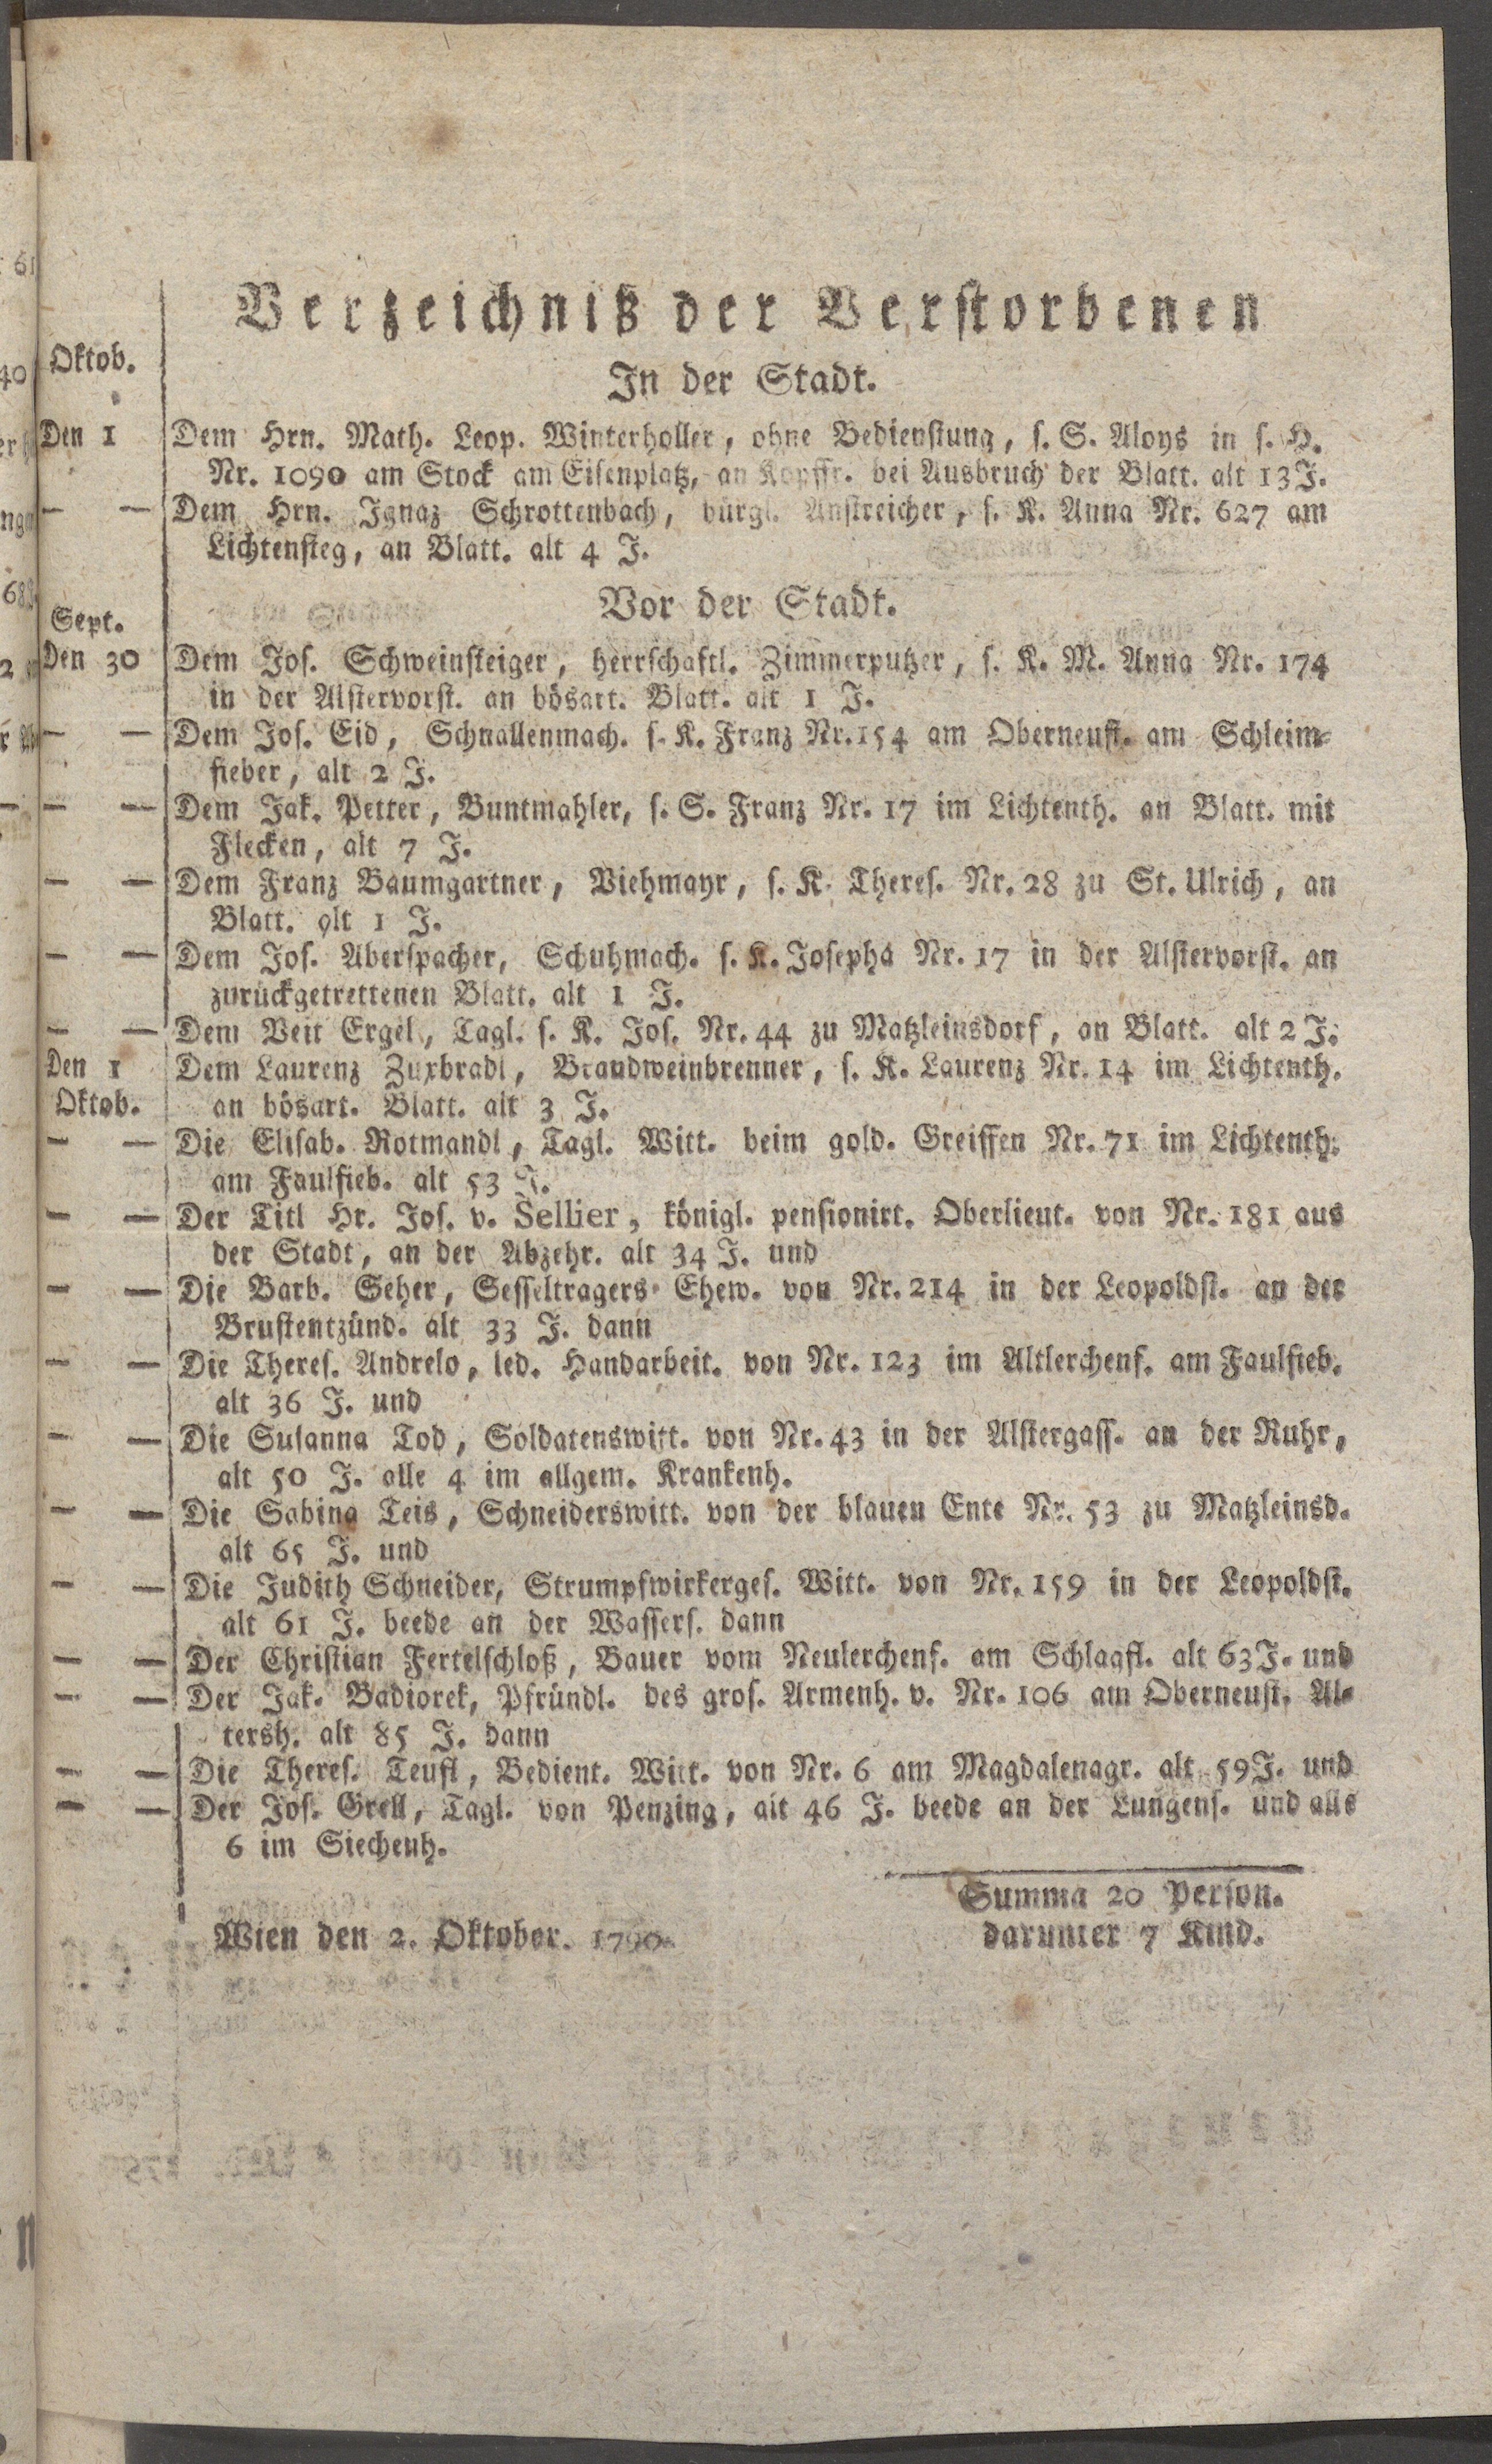 Verzeichniß der Verstorbenen
Oktob.
In der Stadt.
Den 1 Dem Hrn. Math. Leop. Winterholler, ohne Bedienstung, s. S. Aloys in s. H.
Nr. 1090 am Stock am Eisenplatz, an Kopffr. bei Ausbruch der Blatt. alt 13 J.
— — Dem Hrn. Ignaz Schrottenbach, bürgl. Anstreicher, s. K. Anna Nr. 627 am
Lichtensteg, an Blatt. alt 4 J.
Vor der Stadt.
Sept.
Den 30 Dem Jos. Schweinsteiger, herrschaftl. Zimmerputzer, s. K. M. Anna Nr. 174
in der Alstervorst. an bösart. Blatt. alt 1 J.
— — Dem Jos. Eid, Schnallenmach. s. K. Franz Nr. 154 am Oberneust. am Schleim-
fieber, alt 2 J.
— — Dem Jak. Petter, Buntmahler, s. S. Franz Nr. 17 im Lichtenth. an Blatt. mit
Flecken, alt 7 J.
— — Dem Franz Baumgartner, Viehmayr, s. K. Theres. Nr. 28 zu St. Ulrich, an
Blatt. alt 1 J.
— — Dem Jos. Aberspacher, Schuhmach. s. K. Josepha Nr. 17 in der Alstervorst. an
zurückgetrettenen Blatt. alt 1 J.
— — Dem Veit Ergel, Tagl. s. K. Jos. Nr. 44 zu Matzleinsdorf, an Blatt. alt 2 J.
Den 1 Dem Laurenz Zuxbradl, Brandweinbrenner, s. K. Laurenz Nr. 14 im Lichtenth.
Oktob. an bösart. Blatt. alt 3 J.
— — Die Elisab. Rotmandl, Tagl. Witt. beim gold. Greiffen Nr. 71 im Lichtenth.
am Faulfieb. alt 53 J.
— — Der Titl Hr. Jos. v. Sellier, königl. pensionirt. Oberlieut. von Nr. 181 aus
der Stadt, an der Abzehr. alt 34 J. und
— — Die Barb. Seher, Sesseltragers Ehew. von Nr. 214 in der Leopoldst. an der
Brustentzünd. alt 33 J. dann
— — Die Theres. Andrelo, led. Handarbeit. von Nr. 123 im Altlerchenf. am Faulfieb.
alt 36 J. und
— — Die Susanna Tod, Soldatenswitt. von Nr. 43 in der Alstergass. an der Ruhr,
alt 50 J. alle 4 im allgem. Krankenh.
— — Die Sabina Teis, Schneiderswitt. von der blauen Ente Nr. 53 zu Matzleinsd.
alt 65 J. und
— — Die Judith Schneider, Strumpfwirkerges. Witt. von Nr. 159 in der Leopoldst.
alt 61 J. beede an der Wassers. dann
— — Der Christian Fertelschloß, Bauer vom Neulerchenf. am Schlagfl. alt 63 J. und
— — Der Jak. Badiorek, Pfründl. des gros. Armenh. v. Nr. 106 am Oberneust. Al-
tersh. alt 85 J. dann
— — Die Theres. Teufl, Bedient. Witt. von Nr. 6 am Magdalenagr. alt 59 J. und
— — Der Jos. Grell, Tagl. von Penzing, alt 46 J. beede an der Lungens. und alle
6 im Siechenh.
Summa 20 Person.
Wien den 2. Oktober. 1790. darunter 7 Kind.